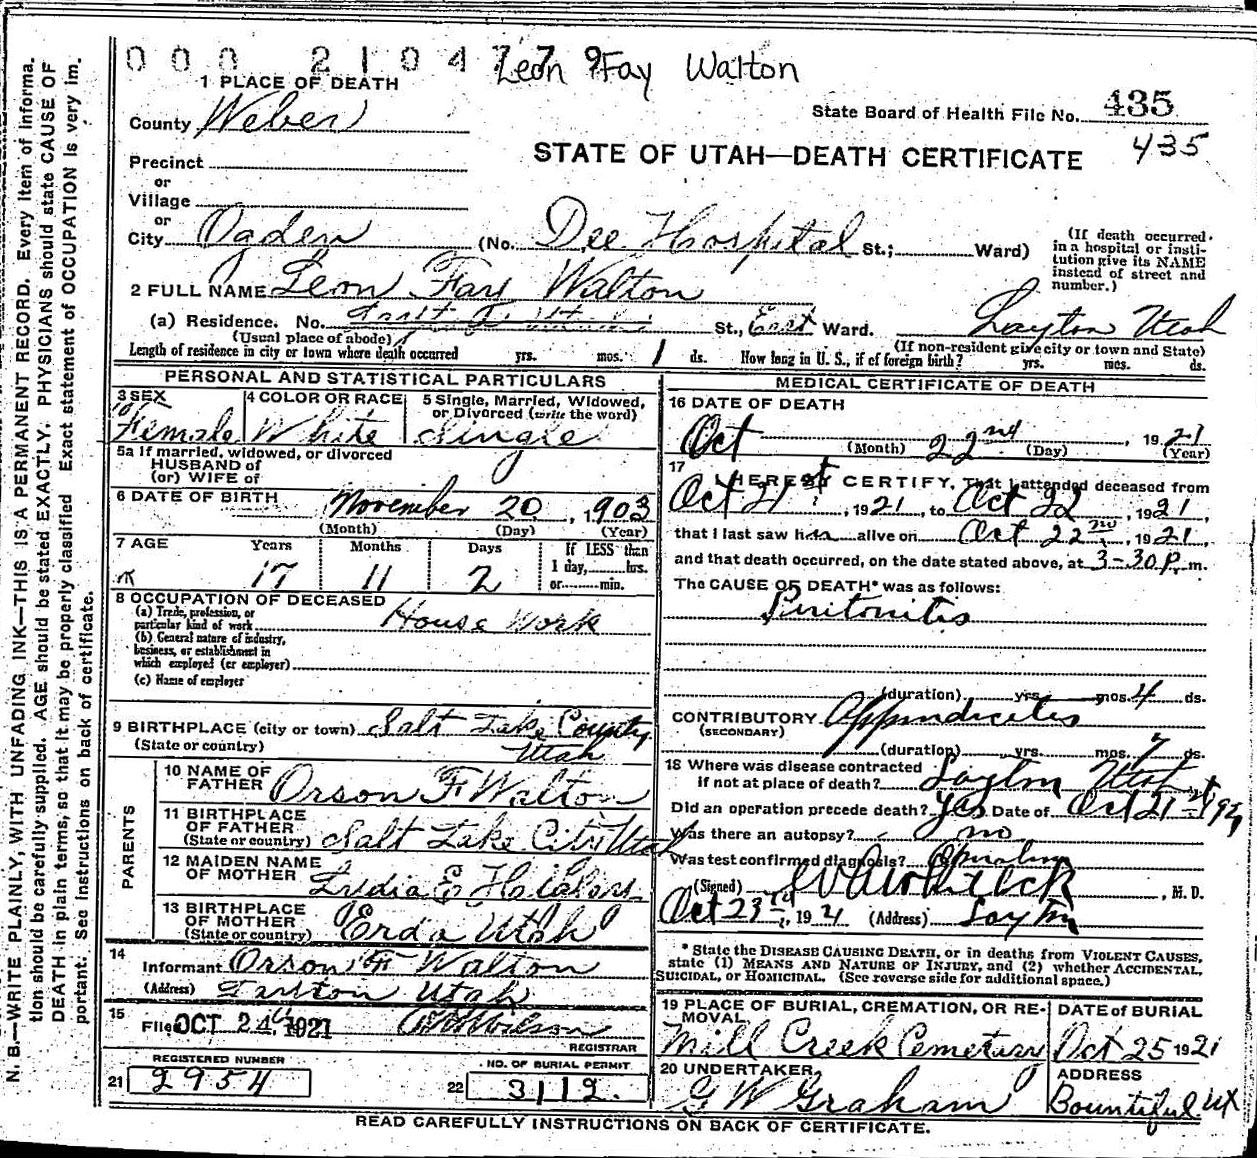 000 21047 9 Leon Fay Walton
1 PLACE OF DEATH
State Board of Health File No. 435
County Weber
435
STATE OF UTAH—DEATH CERTIFICATE
Precinct
or
Village
or
City Ogden (No. Dee Hospital St.; Ward)
(If death occurred in a hospital or institution give its NAME instead of street and number.)
2 FULL NAME Leon Fay Walton
(a) Residence. No. St., East Ward. Layton Utah
(Usual place of abode) (If non-resident give city or town and State)
Length of residence in city or town where death occurred yrs. mos. 1 ds. How long in U. S., if of foreign birth? yrs. mos. ds.
PERSONAL AND STATISTICAL PARTICULARS
3 SEX 4 COLOR OR RACE 5 Single, Married, Widowed, or Divorced (write the word)
Female White Single
5a If married, widowed, or divorced
HUSBAND of
(or) WIFE of
6 DATE OF BIRTH November 20, 1903
(Month) (Day) (Year)
7 AGE Years Months Days If LESS than
17 11 2 1 day, hrs.
or min.
8 OCCUPATION OF DECEASED
(a) Trade, profession, or
particular kind of work House Work
(b) General nature of industry,
business, or establishment in
which employed (or employer)
(c) Name of employer
9 BIRTHPLACE (city or town) Salt Lake County
(State or country) Utah
PARENTS
10 NAME OF
FATHER Orson F Walton
11 BIRTHPLACE
OF FATHER
(State or country) Salt Lake City Utah
12 MAIDEN NAME
OF MOTHER Lydia E
13 BIRTHPLACE
OF MOTHER
(State or country) Erda Utah
14
Informant Orson F Walton
(Address) Utah
15
Filed OCT 24 1921 Wilson
REGISTRAR
REGISTERED NUMBER NO. OF BURIAL PERMIT
21 2954 22 3112.
MEDICAL CERTIFICATE OF DEATH
16 DATE OF DEATH
Oct 22nd, 1921
(Month) (Day) (Year)
17
I HEREBY CERTIFY, That I attended deceased from
Oct 21st, 1921, to Oct 22, 1921,
that I last saw her alive on Oct 22nd, 1921,
and that death occurred, on the date stated above, at 3-30 P. m.
The CAUSE OF DEATH* was as follows:
Peritonitis
(duration) yrs. mos. 4 ds.
CONTRIBUTORY Appendicitis
(SECONDARY)
(duration) yrs. mos. 7 ds.
18 Where was disease contracted
if not at place of death? Layton Utah
Did an operation precede death? Yes Date of Oct 21st 1921
Was there an autopsy? no
Was test confirmed diagnosis? Operation
(Signed) , M. D.
Oct 23rd, 1921 (Address) Layton
* State the DISEASE CAUSING DEATH, or in deaths from VIOLENT CAUSES,
state (1) MEANS AND NATURE OF INJURY, and (2) whether ACCIDENTAL,
SUICIDAL, OR HOMICIDAL. (See reverse side for additional space.)
19 PLACE OF BURIAL, CREMATION, OR RE- DATE of BURIAL
MOVAL
Mill Creek Cemetery Oct 25 1921
20 UNDERTAKER ADDRESS
G W Graham Bountiful UT
READ CAREFULLY INSTRUCTIONS ON BACK OF CERTIFICATE.
N. B.—WRITE PLAINLY, WITH UNFADING INK—THIS IS A PERMANENT RECORD. Every item of informa-
tion should be carefully supplied. AGE should be stated EXACTLY. PHYSICIANS should state CAUSE OF
DEATH in plain terms, so that it may be properly classified. Exact statement of OCCUPATION is very im-
portant. See instructions on back of certificate.